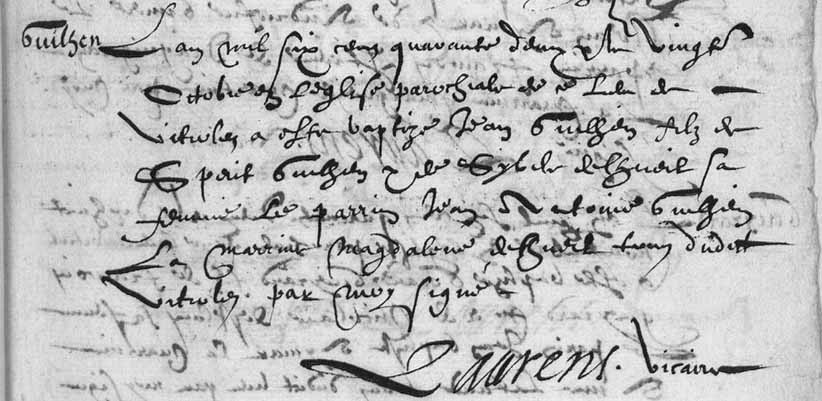 Guilhen
L an mil six cens quarante deux & le vingt
Octobre en leglise parochiale de ce lieu de
Vitroles a este baptize Jean Guilhen filz de
Sperit Guilhen & de Sybile delhueil sa
femme le parrin Jean Antoine Guilhen
La marrine Magdalene delhueil tous dudict
Vitroles par moy signé
Laurens. vicaire